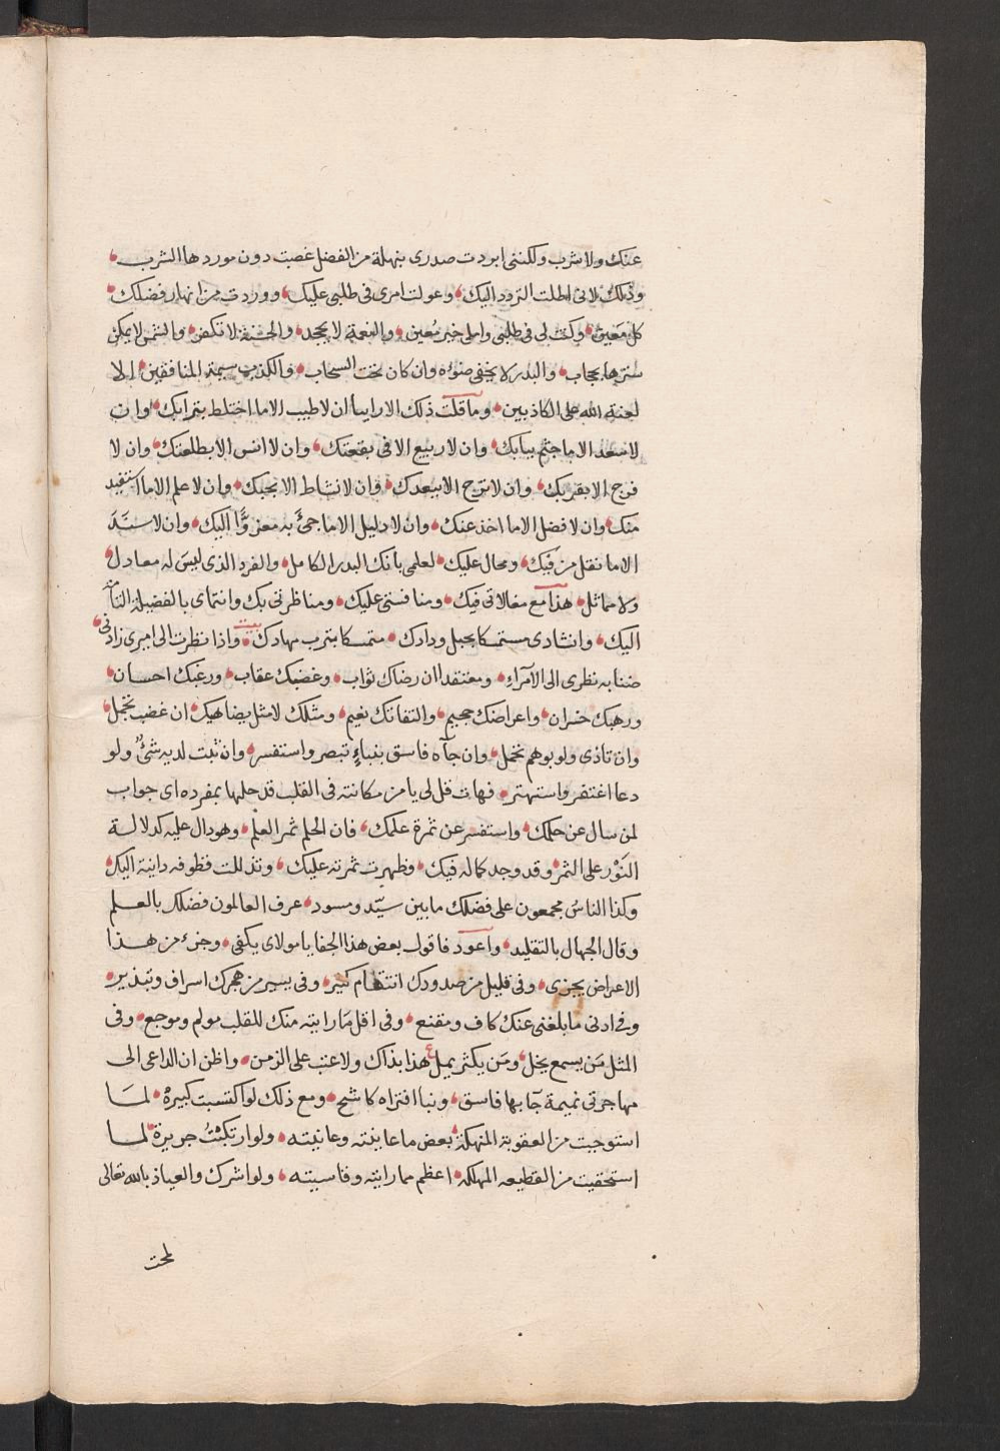 عنك ولا شرب ولكننى ابردت صدرى بنهلة من الفضل غصبت دون موردها الشرب
وذلك لانى اطلت التردد اليك، وعولت امرى فى طلبى عليك، ووردت من انهار فضلك
كل معين، وكنت لى فى طلبى واملى خير مُعين، والنعمة لا تجحد، والحسنة لا تكفر، والشمس لا يمكن
سترها بحجاب، والبدر لا يخفى ضوءه وان كان تحت السحاب، والكذب سيمة المنافقين، الا
لعنة الله على الكاذبين، وما قلت ذلك الا رايا ان لا طيب الا ما اختلط بترابك، وان
لا سعد الا ما جثم ببابك، وان لا ربيع الا فى بقعتك، وان لا انس الا بطلعتك، وان لا
فرح الا بقربك، وان لا ترح الا ببعدك، وان لا نشاط الا بحبك، وان لا علم الا ما استفيد
منك، وان لا فضل الا ما اخذ عنك، وان لا دليل الا ما جئ به معزوًّا اليك، وان لا سند
الا ما نقل من فيك، ومحال عليك، لعلمى بانك البدر الكامل، والفرد الذى ليس له معادل
ولا مماثل، هذا مع مغالاتى فيك، ومنافستى عليك، ومناظرتى بك وانتماى بالفضيلة التامة
اليك، وانشادى مستمسكا بحبل ودادك، متمسكا بترب مهادك، بيت واذا نظرت الى اميرى زادنى
ضنا به نظرى الى الامرآء، ومعتقدا ان رضاك ثواب، وغضبك عقاب، ورغبك احسان
ورهبك خسران، واعراضك جحيم، والتفاتك نعيم، ومثلك لا مثل يضاهيك، ان غضب تجمل
وان تاذى ولو بوهم تحمل، وان جآه فاسق بنباءٍ تبصر واستفسر، وان ثبت لديه شئٌ ولو
دعا اغتفر واستهتر، فهات قل لى يا من مكانته فى القلب قد حلها بمفرده اى جواب
لمن سال عن حلمك، واستفسر عن ثمرة علمك، فان الحلم ثمر العلم، وهو دال عليه كدلالة
النَوْر على الثمر، وقد وجد كماله فيك، وظهرت ثمرته عليك، وتذللت قطوفه دانية اليك
وكذا الناسُ مجمعون على فضلك ما بين سيّد ومسود، عرف العالمون فضلك بالعلم
وقال الجهال بالتقليد، واعود فاقول بعض هذا الجفا يا مولاى يكفى، وجزء من هذا
الاعراض يجزى، وفى قليل من صدودك انتقام كثير، وفى يسير من هجرك اسراف وتبذير
وفى ادنى ما بلغنى عنك كاف ومقنع، وفى اقل مَا رايته منك للقلب مولم وموجع، وفى
المثل مَن يسمع يخل، ومَن يكثر يمل، هذا بذاك ولا عتب على الزمن، واظن ان الداعى الى
مهاجرتى نميمة جآ بها فاسق، ونبا افتراه كاشح، ومع ذلك لو اكتسبت كبيرة، لمَا
استوجبت من العقوبة المنهكة، بعض ما عاينته وعانيته، ولو ارتكبتُ جريرة، لما
استحقيت من القطيعه المهلكه، اعظم مما رايته وقاسيته، ولو اشرك والعياذ بالله تعالى